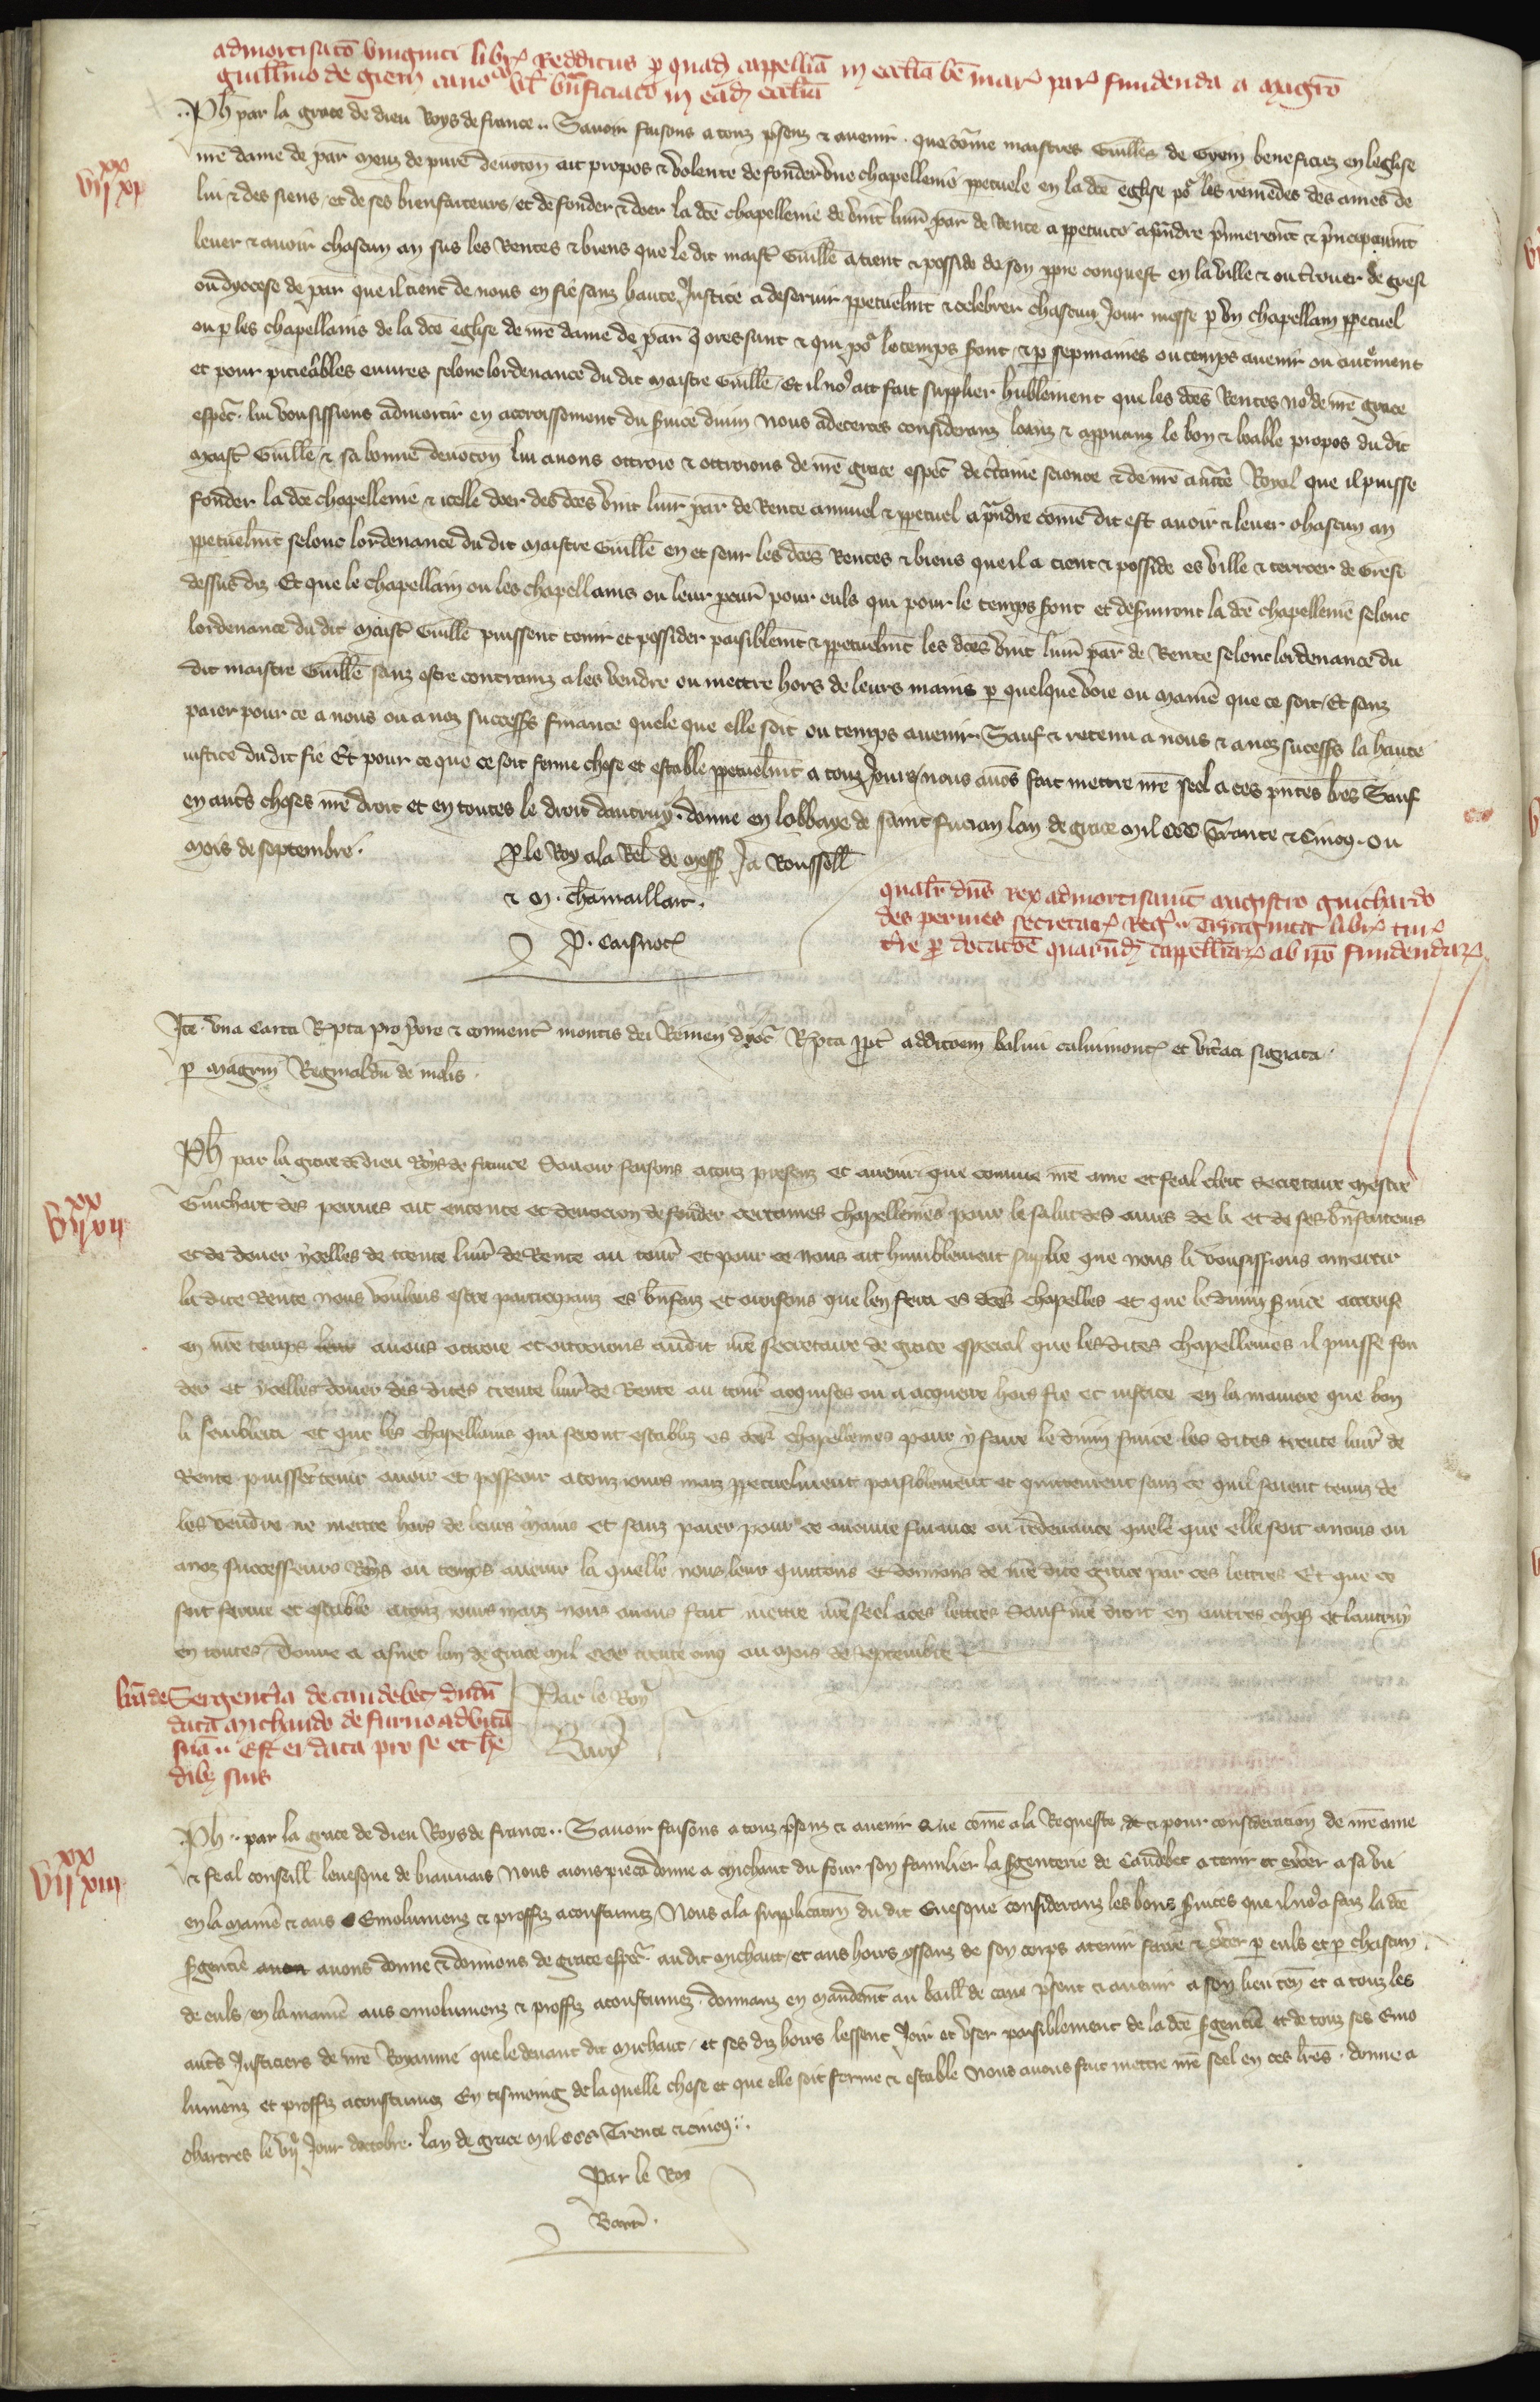 admortisatō viuginti libr̄ Redditus p quad cappellīa in eccl̄ia bē mar̄ par̄ fundenda a magrō
guill̄mo de giem cano° vl̄ bn̄ficiato in ead eccl̄ia
Ph̄ par la grace de dieu Roys de france.. Sauoir faisons a touz p̄senz & auenir. que cōme maistres Guill̄es de Gyem beneficiez en leglise
n̄re dame de par̄ meuz de pure deuocon ait propos & volente de fonder vne chapellenie ppetuele en la dc̄e eglise po' les remedes des ames de
lui & des siens, et de ses bienfaiteurs, et de fonder & doer la dc̄e chapellenie de vint liur̄ par̄ de Rente a ppetuite a p̄ndre p̄mieremt & p̄ncipaumt
leuer & auoir chascun an sus les Rentes & biens que le dit maist̄ Guill̄e a tient & posside de son ppre conquest en la ville & ou t̄rouer de gresi
ou dyocese de par̄ que il tient de nous en fie sanz haute Justice a deseruir ppetuelmt & celebrer chascun Jour messe p vn chapellain ppetuel
ou p les chapellains de la dc̄e eglise de n̄re dame de par̄ q̄ ores sunt & qui po' le temps s̄ont, & p sepmaines ou temps auenir ou aut̄ement
et pour piteables euures selonc lordenance du dit maistre Guill̄e, Et il no' ait fait supplier hūblement que les dc̄es Rentes no' de n̄re grace
esp̄ec. lui vousissions admortir en accroissement du s̄uice diuin Nous adecertes consideranz loanz & appuanz le bon & loable propos du dit
maist̄ Guill̄e & sa bonne deuocōn lui auons ottroie & ottroions de n̄re grace esp̄ec de c̄taine science & de n̄re auct̄e Royal que il puisse
fonder la dc̄e chapellenie & icelle doer des dc̄es vint liur̄ par̄ de Rente annuel & ppetuel a p̄ndre cōme dit est auoir & leuer chascun an
ppetuelmt selonc lordenance du dit maistre Guill̄e en et seur les dc̄es Rentes & biens que il a tient & posside es ville & terroer de Gresi
dessus diz Et que le chapellain ou les chapellains ou leur pcur̄ pour euls qui pour le temps s̄ont et des̄uiront la dc̄e chapellenie selonc
lordenance du dit maist̄ Guill̄e puissent tenir et possider paisiblemt & ppetuelmt les dc̄es vint liur̄ par̄ de Rente selonc lordenance du
dit maistre Guill̄e sanz estre contrainz a les vendre ou mettre hors de leurs mains p quelque voie ou maniē que ce soit, Et sanz
paier pour ce a nous ou a noz success̄ finance quele que elle soit ou temps auenir. Sauf & retenu a nous & a noz sucess̄ la haute
iustice du dit fie Et pour ce que ce soit ferme chose et estable ppetuelmt a touz Jours, nous auōs fait mettre n̄re seel a ces p̄ntes l̄res Sauf
en aut̄s choses n̄re droit et en toutes le droit dautruy. donne en labbaye de saint fucian lan de grace mil ccc Trante & Cinq. ou
mois de septembre.
P le Roy a la Rel̄ de mess̄ Ja Roussell̄
& m. chamaillart.
P. Caisnot̄
qualr̄ dn̄s rex admortisauit magistro guichardo
des permes secretar̄ Reḡ.. Triginta libr̄ tur̄
tr̄e p dotacōe quarūd cappellīar̄ ab ip̄o fundendar̄
Jtē. vna Carta R̄pta pro p̄ore & conuent̄ montis dei Remen̄ dyoc̄ R̄pta ppt̄ addicoēm baliui caluimont̄ et vit̄aci signata.
p magr̄m Reginaldū de molīs.
Ph̄ par la grace de dieu Roys de france Sauoir faisons a touz presenz et auenir que comme n̄re ame et feal clerc Secretaire mestre
Guichart des permes ait entente et deuocion de fonder certaines chapellenies pour le salut des ames de li et de ses bn̄faiteurs
et de douer ycelles de trente liur̄ de Rente au tour̄ et pour ce nous ait humblement suplie que nous li vousissions amortir
la dite Rente nous voulans estre participanz es bn̄faiz et oroisons que len fera es dc̄es chapelles et que le diuin s̄uice accroisse
en n̄re temps auons ottroie et ottroions audit n̄re secretaire de grace especial que les dites chapellenies il puisse fon
der et ycelles douer des dites trente liur̄ de Rente au tour̄ acquises ou a acquerre hors fie et iustice en la maniere que bon
li semblera et que les chapellains qui seront establiz es dc̄es chapellenies pour y faire le diuin s̄uice les dites trente liur̄ de
Rente puissēt tenir auoir et possesoir a touz iours maiz ppetuelment paisiblement et quittement sanz ce quil soient tenuz de
les vendre ne mettre hors de leurs mains et sanz paier pour ce aucune finance ou redeuance quele que elle soit a nous ou
a noz successeurs Roys ou temps auenir la quelle nous leur quittons et donnons de n̄re dite grace par ces lettres Et que ce
soit ferme et estable a touz iours maiz nous auons fait mettre n̄re seel a ces lettres Sauf n̄re droit en autres chos̄ et lautruy
en toutes. Donne a lan de grace mil ccc trente cinq ou mois de septembre
Par le Roy
Barr̄
lr̄a de Sergent̄ia de caudebec dudū
data michaudo de furno ad vitā
suā.. Est ei data pro se et he
dib; suis
Ph̄.. par la grace de dieu Roys de france.. Sauoir faisons a touz p̄senz & auenir Que cōme a la Requeste & pour consideracion de n̄re ame
& feal conseill̄ leuesque de biauuais Nous aions pieca donne a michaut du four son familier la s̄genterie de Caudebec a tenir et exc̄er a sa vie
en la maniē & aus Emolumenz & proffiz acoustumez, Nous a la supplicatōn du dit Euesque consideranz les bons s̄uices que il no' a faiz la dc̄e
s̄gentiē auons donne & donnons de grace esp̄ec. au dit michaut, et aus hoirs yssanz de son corps a tenir faire & exc̄er p euls et p chascun
de euls, en la maniē aus emolumenz & proffiz acoustumez. donnanz en mandemt au baill̄ de caux p̄sent & auenir a son lieu ten̄ et a touz les
aut̄s Justiciers de n̄re Royaume que le deuant dit michaut, et ses diz hoirs lessent Joir et vser paisiblement de la dc̄e s̄gentiē et de touz ses Emo
lumenz et proffiz acoustumez En tesmoing de la quelle chose et que elle soit ferme & estable Nous auons fait mettre n̄re seel en ces l̄res. donne a
chartres le vij Jour doctobre. lan de grace mil ccc. Trente & cinq..
Par le Roy
Barr̄.